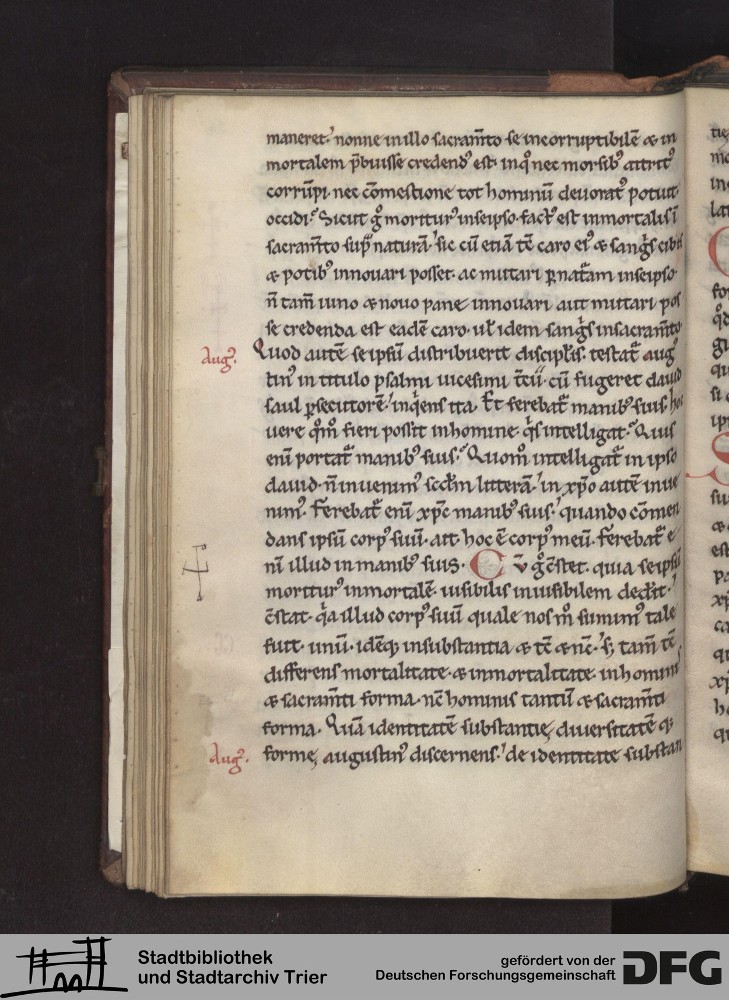 maneret. nonne in illo sacram̄to se incorruptibilē & in
mortalem p̄buisse credend᷒ est. in q̊ nec morsib᷒ attrit᷒
corrūpi. nec cōmestione tot hominū deuorat᷒ potuit
occidi. Sicut g̊ moritur᷒ in seipso. fact᷒ est inmortalis ī
sacram̄to sup̄ naturā. sic cū etiā tē caro ei᷒ & sang̍s cibis
& potib᷒ innouari posset. ac mutari p̱ nat̄am in seipso.
n̄ tam̄ in uno & nouo pane innouari aut mutari pos
se credenda est eadē caro. ul̄ idem sang̍s in sacram̄to.
Aug᷒. Quod autē seipsū distribuerit discipl̄is. testat̄ aug᷒
tin᷒ in titulo psalmi uicesimi t̄cii. cū fugeret dauid
saul p̱secutorē. inq̍ens ita. Et ferebat̄ manib᷒ suis. hoc
uere q̊m̊ fieri possit in homine q̍s intelligat. Quis
enī portat̄ manib᷒ suis. Quom̊ intelligat̄ in ipso
dauid. n̄ inuenim᷒ scd̄m litterā. in xp̄o autē inue
nim᷒. Ferebat̄ enī xp̄c manib᷒ suis. quando cōmen
dans ipsū corp᷒ suū. ait. hoc ē corp᷒ meū. Ferebat̄ e
ni illud in manib᷒ suis. Cū g̊ c̄stet. quia seipsū
moritur᷒ inmortalē. uisibilis inuisibilem dedit.
c̄stat. q̍a illud corp᷒ suū quale nos m̊ sumim᷒ tale
fuit. unū. idēq; in substantia & tē & nc̄. s; tam̄ tē
differens mortalitate. & inmortalitate. in hominis
& sacram̄ti forma. nc̄ hominis tantū & sacram̄ti
forma. Quā identitatē substantię, diuersitatē q;
Aug᷒. formę, augustin᷒ discernens. de identitate substan
Stadtbibliothek
und Stadtarchiv Trier
gefördert von der
Deutschen Forschungsgemeinschaft
DFG